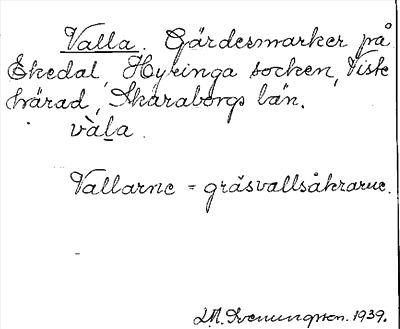 Valla. Gärdesmarker på
Ekedal, Hyringa socken, Viste
härad, Skaraborgs län.
vàla.
Vallarne = gräsvallsåkrarne.
Svenungsson. 1939.